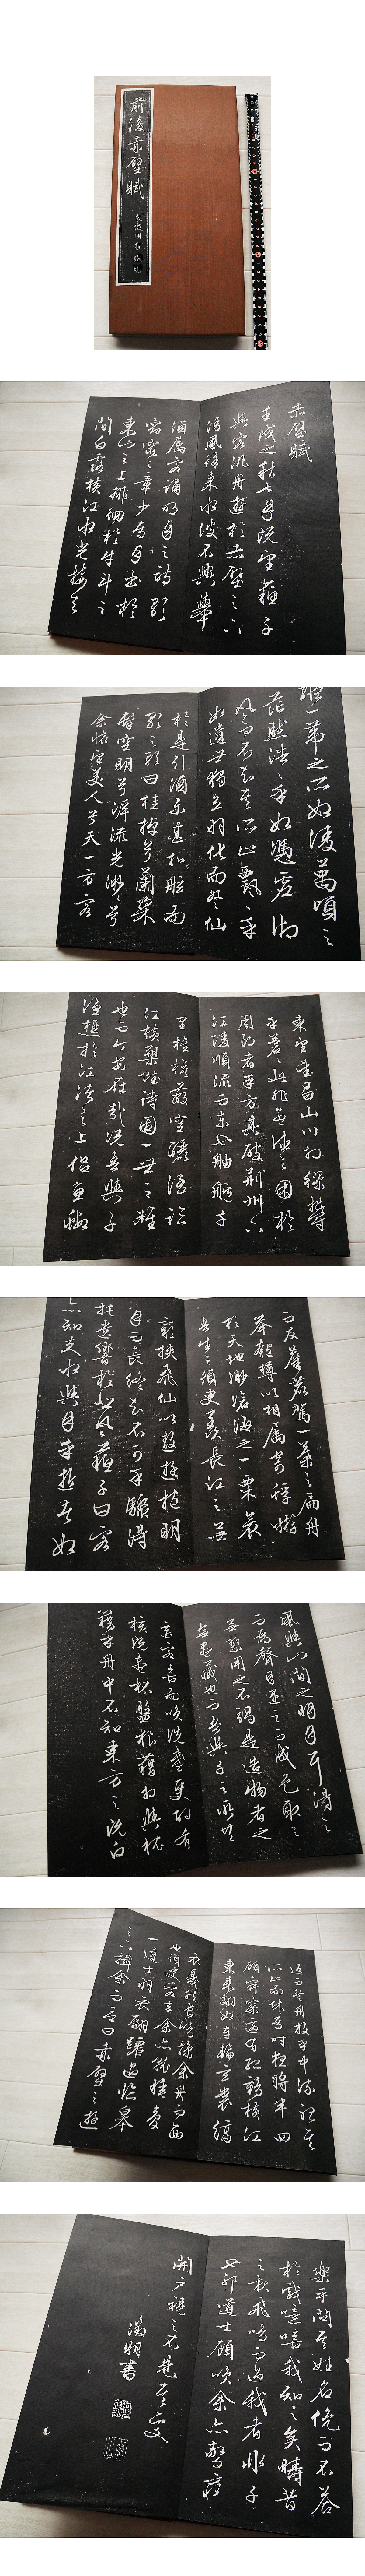 前後赤壁賦
文徵明書
赤壁賦
壬戌之秋七月既望蘇子
與客泛舟遊於赤壁之下
清風徐來水波不興舉
酒屬客誦明月之詩歌
窈窕之章少焉月出於
東山之上徘徊於斗牛之
間白露橫江水光接天
縱一葦之所如凌萬頃之
茫然浩浩乎如馮虛御
風而不知其所止飄飄乎
如遺世獨立羽化而登仙
於是引酒樂甚扣舷而
歌之歌曰桂棹兮蘭槳
擊空明兮泝流光渺渺兮
余懷望美人兮天一方客
東望武昌山川相繆鬱
乎蒼蒼此非孟德之困於
周郎者乎方其破荊州下
江陵順流而東也舳艫千
里旌旗蔽空釃酒臨
江橫槊賦詩固一世之雄
也而今安在哉況吾與子
漁樵於江渚之上侶魚蝦
而友麋鹿駕一葉之扁舟
舉匏樽以相屬寄蜉蝣
於天地渺滄海之一粟哀
吾生之須臾羨長江之無
窮挾飛仙以遨遊抱明
月而長終知不可乎驟得
托遺響於悲風蘇子曰客
亦知夫水與月乎逝者如
風與山間之明月耳得之
而為聲目遇之而成色取之
無禁用之不竭是造物者之
無盡藏也而吾與子之所共
適客喜而笑洗盞更酌肴
核既盡杯盤狼藉相與枕
藉乎舟中不知東方之既白
返而登舟放乎中流聽其
所止而休焉時夜將半四
顧寂寥適有孤鶴橫江
東來翅如車輪玄裳縞
衣戛然長鳴掠余舟而西
也須臾客去余亦就睡夢
一道士羽衣翩躚過臨皋
之下揖余而言曰赤壁之遊
樂乎問其姓名俛而不答
嗚呼噫嘻我知之矣疇昔
之夜飛鳴而過我者非子
也耶道士顧笑余亦驚寤
開戶視之不見其處
徵明書